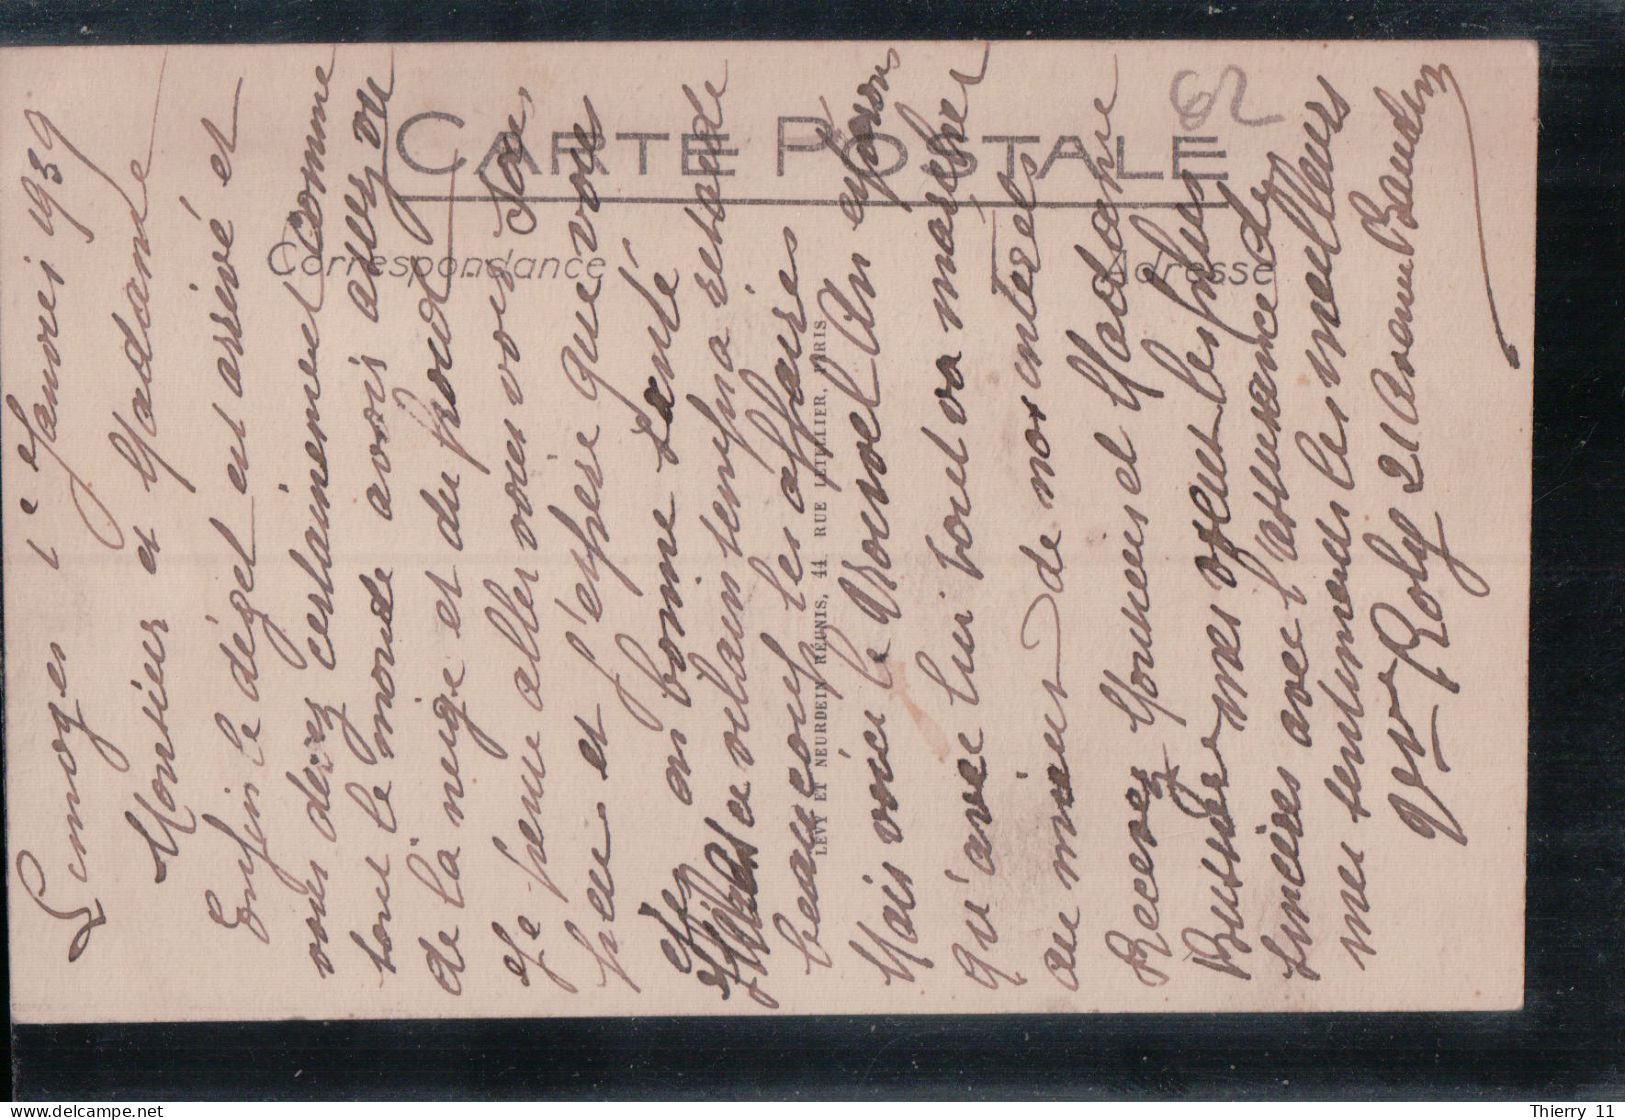 CARTE POSTALE
Correspondance
Adresse
LEVY ET NEURDEIN RÉUNIS, 44, RUE LETELLIER, PARIS
62
Limoges 1e Janvier 1939
Monsieur et Madame
Enfin le dégel est arrivé et
vous devez certainement comme
tout le monde avoir assez vu
de la neige et du froid
Je pense aller vous voir sous
peu et j'espère que vous
en bonne santé
le mauvais temps a retardé
beaucoup les affaires
Mais voici le Nouvel An espérons
qu'avec lui tout va marcher
au mieux de nos intérêts
Recevez Monsieur et Madame
mes voeux les plus
sincères avec l'assurance de
mes sentiments les meilleurs
Vve Roly 21 Avenue Baudin
Thierry 11